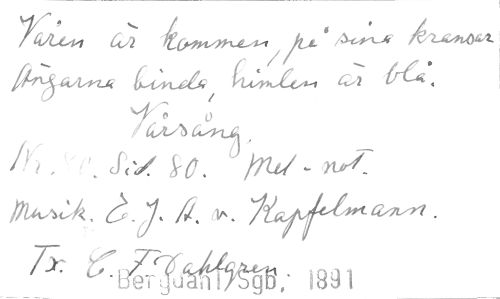 Våren är kommen, på sina kransar
Ängarna binda, himlen är blå.
Vårsång.
Nr. 80. Sid. 80. Mel-not.
Musik. E. J. A. v. Kapfelmann.
Tx. C. F Dahlgren
Sgb; 1891